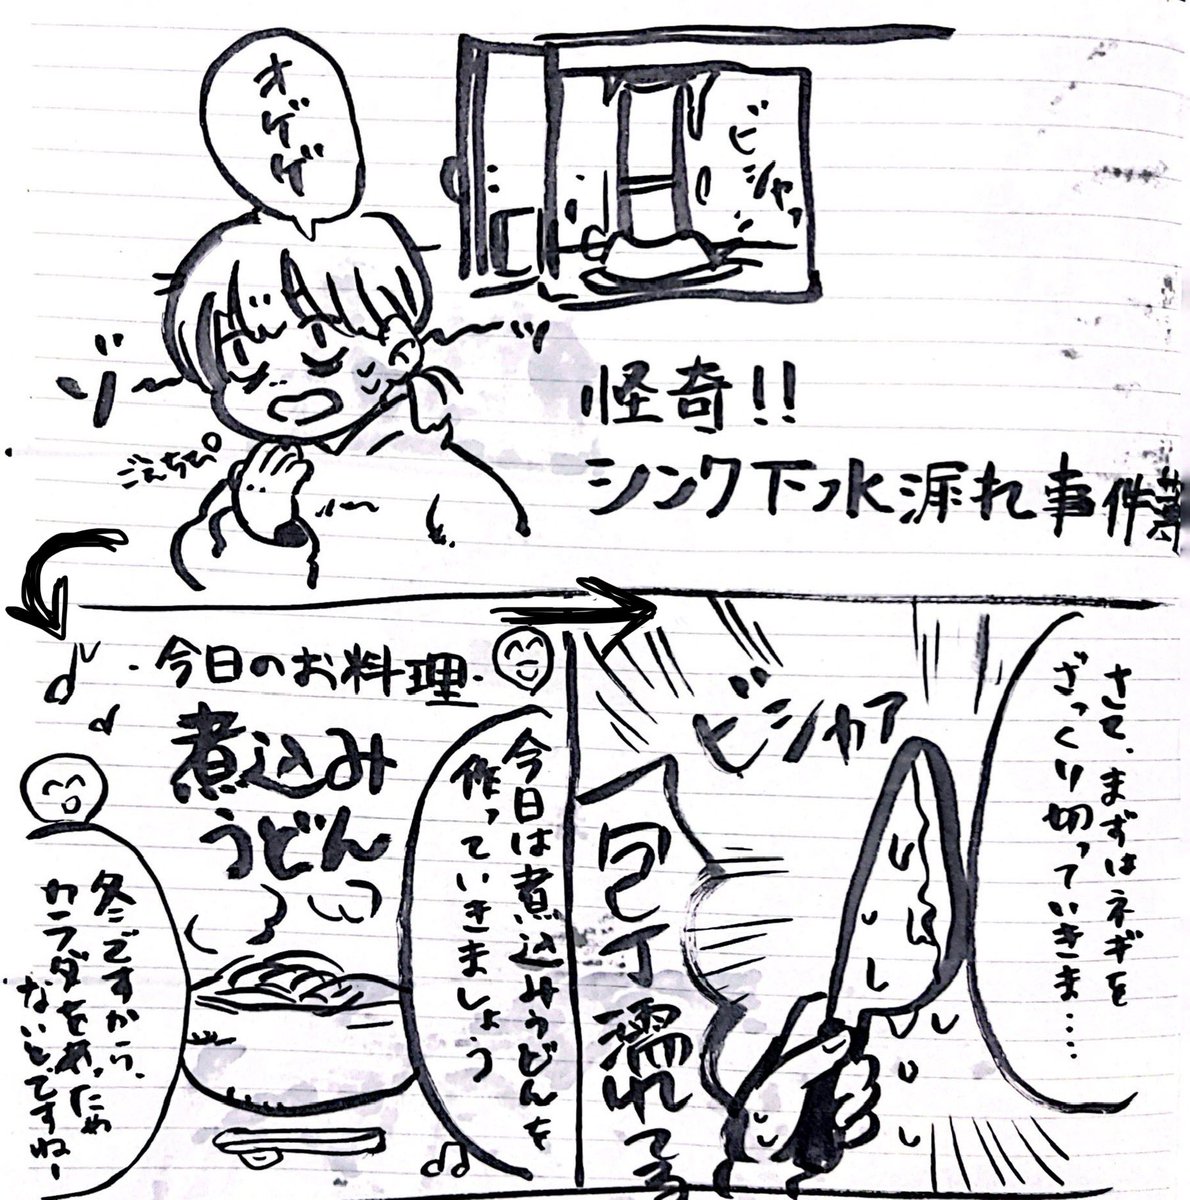 オゲゲゲ
ビシャッ
ゾ〜
〜ッ
ごえちぴ
怪奇!!
シンク下水漏れ事件簿
・今日のお料理・
煮込み
うどん
今日は煮込みうどんを
作っていきましょう
冬ですから、
カラダをあっため
ないとですねー
さて、まずはネギを
ざっくり切っていきま……
ビシャア
包丁濡れてる